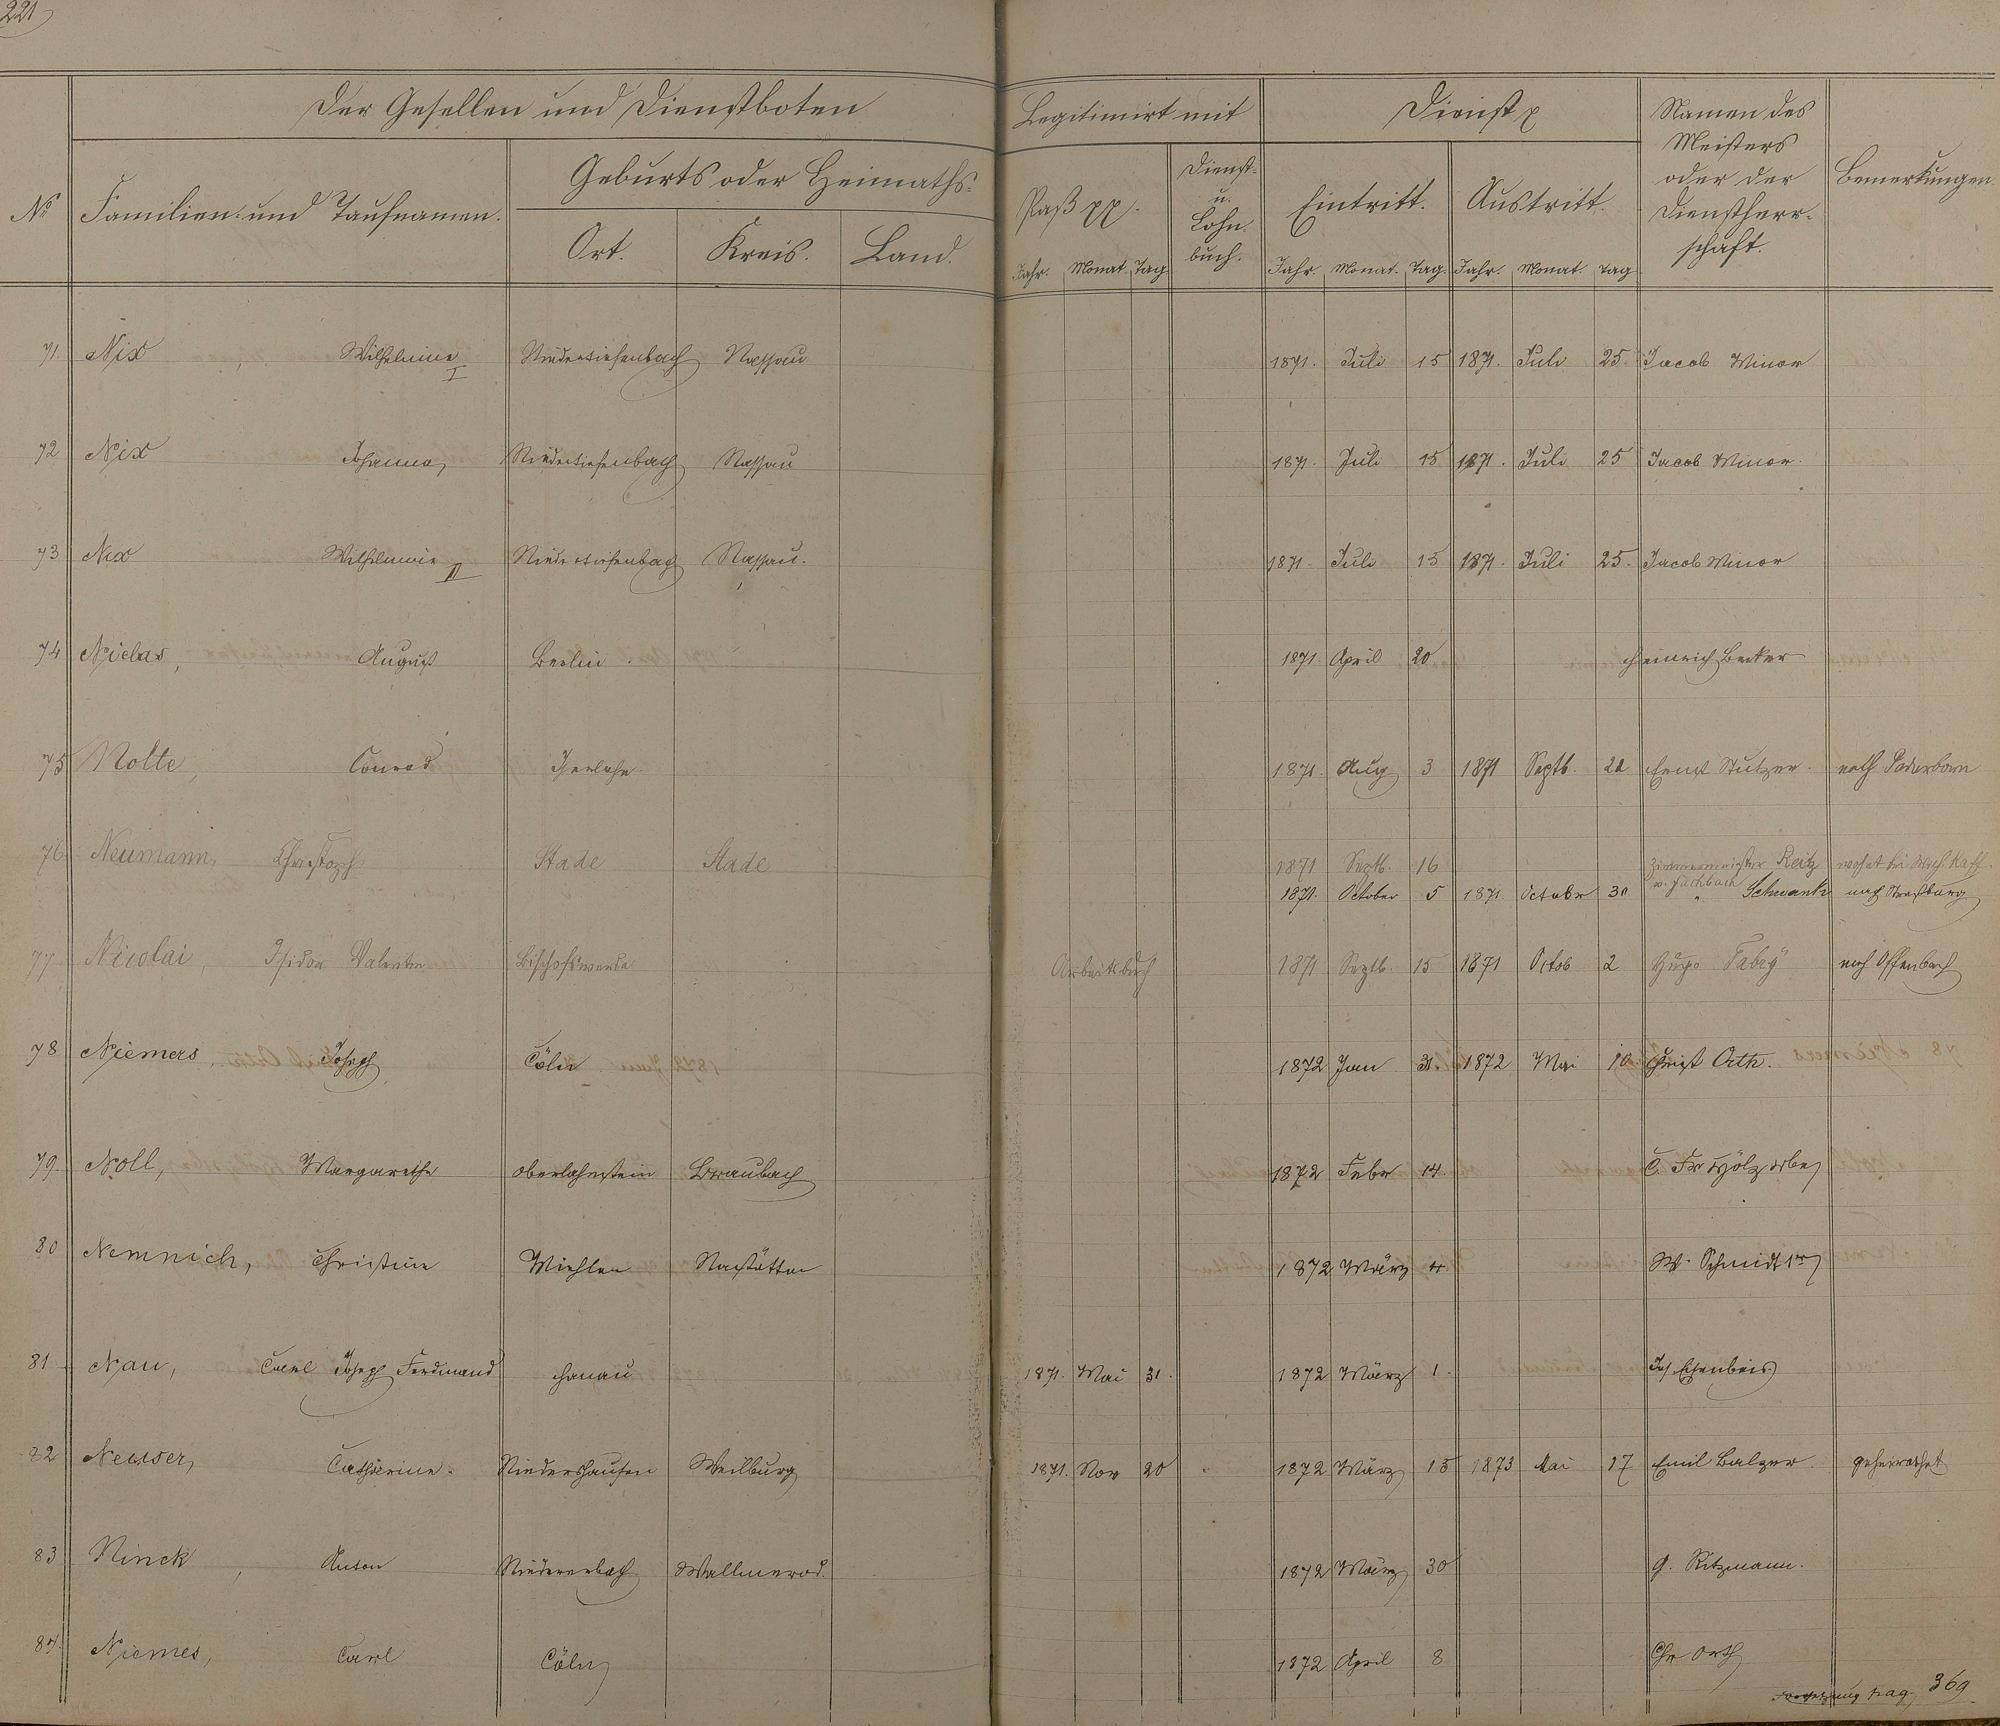 221
Der Gesellen und Dienstboten
Legitimirt mit
Dienst
Namen des Meisters oder der Dienstherr-schaft.
Bemerkungen
No
Familien- und Taufnamen.
Geburts oder Heimaths-
Ort. Kreis. Land.
Paß pp.
Dienst- u. Lohn-buch.
Eintritt. Austritt.
Jahr. Monat. Tag Jahr. Monat. Tag. Jahr. Monat. Tag
71. Nix, Wilhelmine I Niedertiefenbach Nassau 1871. Juli 15 1871. Juli 25. Jacob Minor
72 Nix Johanna Niedertiefenbach Nassau 1871. Juli 15 1871. Juli 25 Jacob Minor.
73 Nix Wilhelmine II Niedertiefenbach Nassau. 1871. Juli 15 1871. Juli 25. Jacob Minor
74 Niclas, August Berlin. 1871. April 20 Heinrich Becker
75 Nolte, Conrad Iserlohn 1871. Aug 3 1871 Septb. 22 Ernst Stutzer. nach Paderborn
76 Neumann, Christoph Stade Stade 1871 Septb. 16 Zimmermeister Reitz wohnt bei
1871. October 5 1871 October 30 v. Fachbach " Schwank nach Straßburg
77 Nicolai, Isidor Valentin Bischofswerda Arbeitsbuch 1871 Septb. 15 1871 Octob 2 Hugo Fabry nach Offenbach
78 Niemers, Joseph Cöln 1872 Jan 31. 1872 Mai 10 Christ Orth.
79. Noll, Margarethe Oberlahnstein Braubach 1872 Febr 14. C. Fr
80 Nemnich, Christine Miehlen Nastätten 1872 März 4. W. Schmidt 1r
81 Nau, Carl Joseph Ferdinand Hanau 1871. Mai 31. 1872 März 1. Jos Eisenbeis
82 Neuser, Catharine. Niedershausen Weilburg 1871. Nov 20 1872 März 15 1873 Mai 17 Emil Balzer geheirathet
83 Ninck, Anton Niedererbach Wallmerod. 1872 März 30 G. Ritzmann.
84. Niemes, Carl Cöln 1872 April 8 Chr Orth
Fortsetzung pag. 369